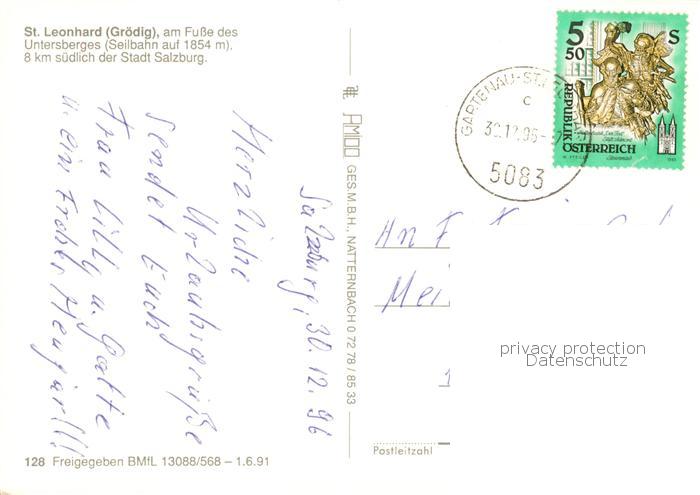 St. Leonhard (Grödig), am Fuße des
Untersberges (Seilbahn auf 1854 m),
8 km südlich der Stadt Salzburg.
Salzburg, 30.12.96
Herzliche
Urlaubsgrüße
sendet Euch
Frau Lilly u. Gatte
u. ein Frohes Neujar!!!
128 Freigegeben BMfL 13088/568 – 1.6.91
AMIDO GES.M.B.H., NATTERNBACH 0 72 78 / 85 33
GARTENAU-ST.
c
5083
5 50 S
REPUBLIK
ÖSTERREICH
An F
Mei
privacy protection
Datenschutz
Postleitzahl